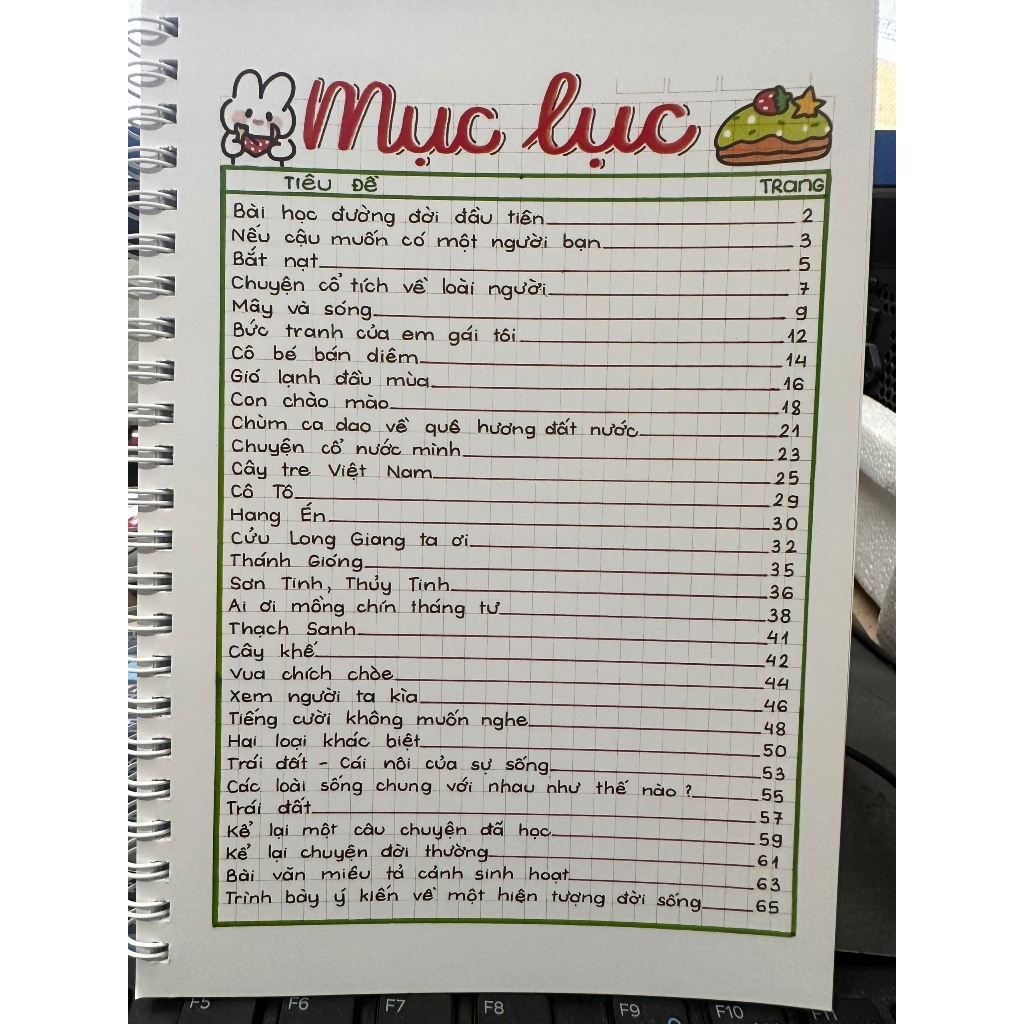 Mục lục
TIÊU ĐỀ TRANG
Bài học đường đời đầu tiên 2
Nếu cậu muốn có một người bạn 3
Bắt nạt 5
Chuyện cổ tích về loài người 7
Mây và sóng 9
Bức tranh của em gái tôi 12
Cô bé bán diêm 14
Gió lạnh đầu mùa 16
Con chào mào 18
Chùm ca dao về quê hương đất nước 21
Chuyện cổ nước mình 23
Cây tre Việt Nam 25
Cô Tô 29
Hang Én 30
Cửu Long Giang ta ơi 32
Thánh Gióng 35
Sơn Tinh, Thủy Tinh 36
Ai ơi mồng chín tháng tư 38
Thạch Sanh 41
Cây khế 42
Vua chích chòe 44
Xem người ta kìa 46
Tiếng cười không muốn nghe 48
Hai loại khác biệt 50
Trái đất - Cái nôi của sự sống 53
Các loài sống chung với nhau như thế nào? 55
Trái đất 57
Kể lại một câu chuyện đã học 59
Kể lại chuyện đời thường 61
Bài văn miêu tả cảnh sinh hoạt 63
Trình bày ý kiến về một hiện tượng đời sống 65
F5 F6 F7 F8 F9 F10 F11